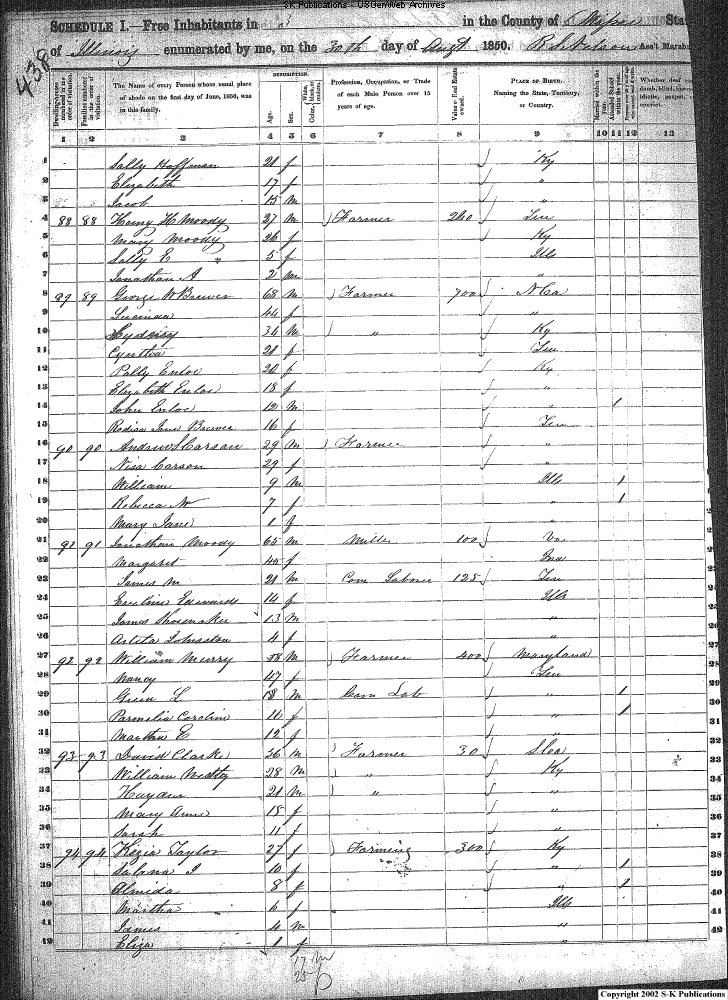 SK Publications - USGenWeb Archives
SCHEDULE I.—Free Inhabitants in 3 in the County of State
of Illinois enumerated by me, on the 30th day of Augt 1850. Ass't Marsh
438
Dwelling-houses numbered in the order of visitation.
Families numbered in the order of visitation.
The Name of every Person whose usual place of abode on the first day of June, 1850, was in this family.
DESCRIPTION.
Age.
Sex.
Color, White, black, or mulatto.
Profession, Occupation, or Trade of each Male Person over 15 years of age.
Value of Real Estate owned.
PLACE OF BIRTH. Naming the State, Territory, or Country.
Married within the year.
Attended School within the year.
Whether deaf dumb, blind, idiotic, pauper, convict.
1 2 3 4 5 6 7 8 9 10 11 12 13
1 Sally Hoffman 21 f Ky
2 Elizabeth 17 f "
3 Jacob 15 m "
4 88 88 H Moody 27 m Farmer 240 Ten
5 Mary Moody 26 f Ky
6 Sally E " 5 f Ills
7 Jonathan A 2 m "
8 89 89 George W Brewer 68 m Farmer 700 N Ca
9 Lucinda 44 f "
10 34 m " Ky
11 Cynthia 21 f Ten
12 Polly Enloe 20 f Ky
13 Elizabeth Enloe 18 f "
14 John Enloe 12 m " 1
15 Jane Brewer 16 f Ten
16 90 90 Andrew Carson 29 m Farmer "
17 Carson 29 f "
18 William 9 m Ills 1
19 Rebecca 7 f " 1
20 Mary Jane 1 f "
21 91 91 Jonathan Moody 65 m Miller 100 Va
22 Margaret 45 f
23 James M 21 m Com Laborer 125 Ten
24 Emeline Edwards 14 f Ills
25 James Shoemaker 13 m "
26 Johnston 4 f "
27 92 92 William Murry 58 m Farmer 400 Maryland
28 Nancy 47 f Ten
29 Green L 18 m Com Lab " 1
30 Parmelia Caroline 16 f " 1
31 Martha E 12 f "
32 93 93 David Clarke 36 m Farmer 30 S Ca
33 William 28 m " Ky
34 Hayden 21 m " "
35 Mary Anne 15 f "
36 Sarah 11 f "
37 94 94 Kezia Taylor 27 f Farming 300 Ky
38 10 f " 1
39 Almida 8 f " 1
40 Martha 6 f Ills
41 James 4 m "
42 Eliza 1 f "
17 m
25 f
Copyright 2002 S-K Publications